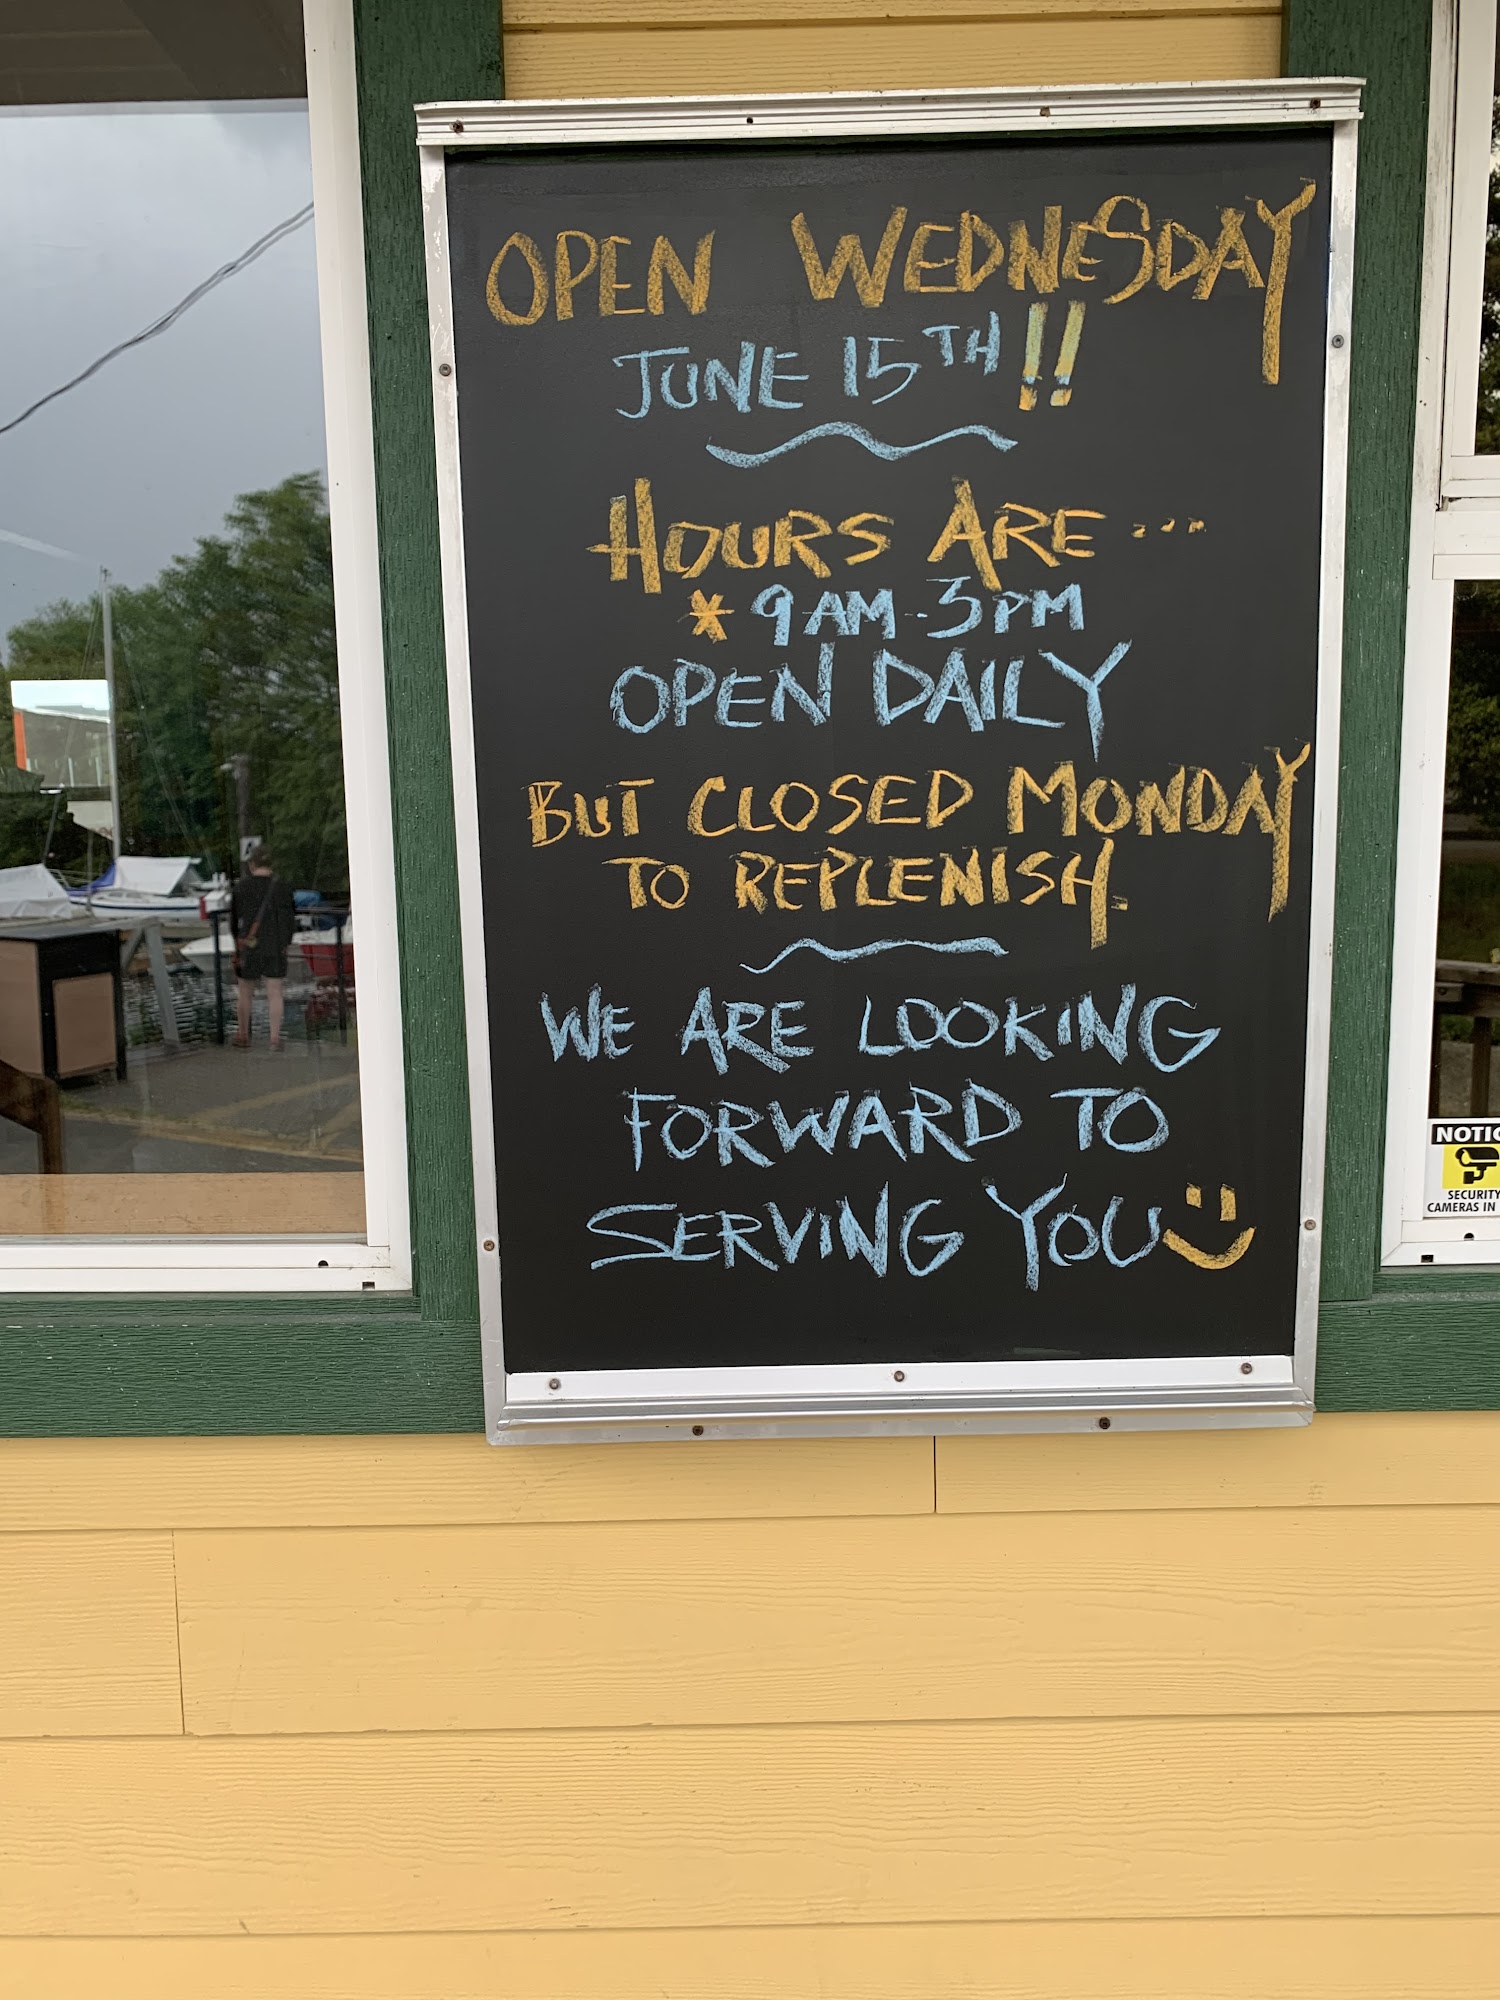 OPEN WEDNESDAY
JUNE 15TH!!
HOURS ARE...
* 9AM-3PM
OPEN DAILY
BUT CLOSED MONDAY
TO REPLENISH.
WE ARE LOOKING
FORWARD TO
SERVING YOU
NOTIC
SECURITY
CAMERAS IN